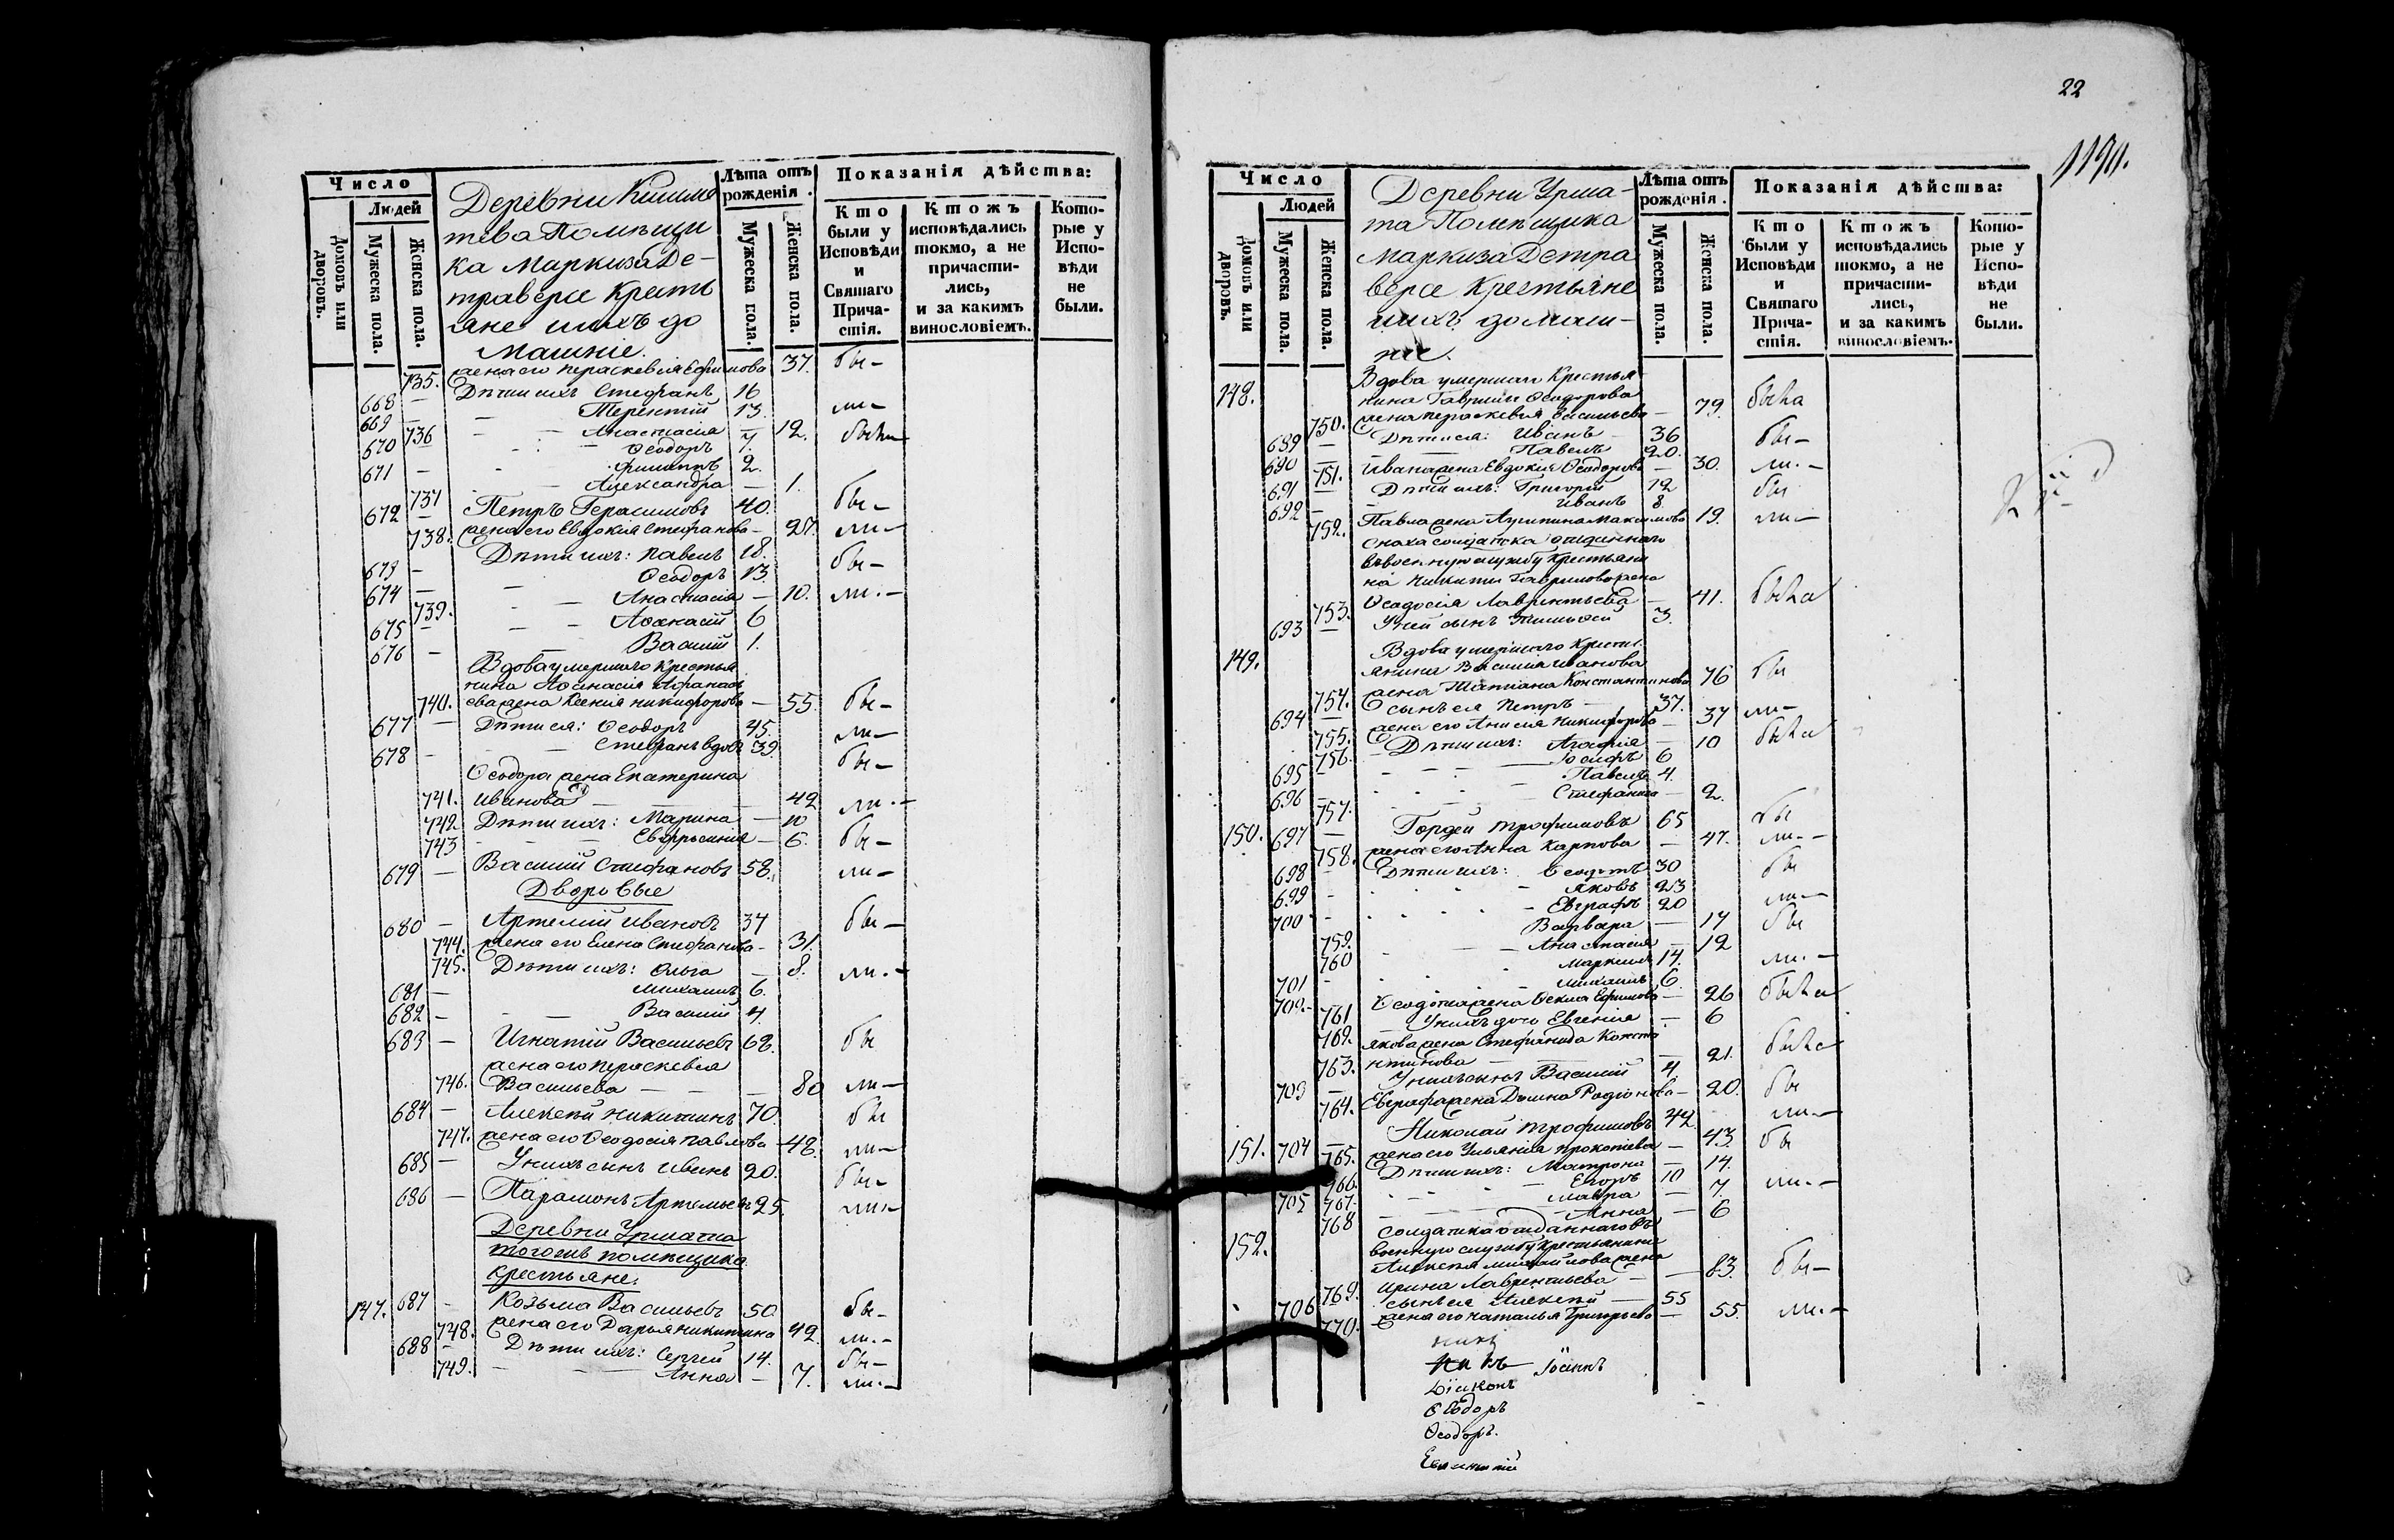 Число
Людей
Домовъ или дворовъ.
Мужеска пола.
Женска пола.
Деревни
тева Помѣщи
ка Маркиза Де-
траверсе Кресть
яне ихъ до
машніе.
Лѣта отъ рожденія.
Мужеска пола.
Женска пола.
Показанія дѣйства:
Кто были у Исповѣди и Святаго Причастія.
Ктожъ исповѣдались токмо, а не причастились, и за какимъ винословіемъ.
Которые у Исповѣди не были.
735. жена его Параскевія Ефимова 37. бы-
668 — Дѣти ихъ Стефанъ 16
669 — Терентій 13. ли-
736 Анастасія — 12. были
670 — Ѳеодоръ 7.
671 — Филиппъ 2.
737 Александра — 1.
672 — Петръ Герасимовъ 40. бы-
738. жена его Евдокія Стефанова — 27. ли-
673 — Дѣти ихъ: Павелъ 18. бы-
674 — Ѳеодоръ 13.
739. Анастасія — 10. ли.-
675 — Аѳанасій 6
676 — Василій 1.
Вдова умершаго Крестья
нина Аѳанасія Аѳанась
740. ева жена Ксенія Никифорова — 55. бы-
677 — Дѣти ея: Ѳеодоръ 45. ли-
678 — Стефанъ вдовъ 39. бы-
Ѳеодора жена Екатерина
741. Иванова — 42 ли.-
742 Дѣти ихъ: Марина — 10
743 Евфросинія — 6. бы-
679 — Василій Стефановъ 58. ли-
Дворовые
680 — Артемій Ивановъ 37 бы-
744. жена его Елена Стефанова — 31.
745. Дѣти ихъ: Ольга — 8. ли.-
681 — Михаилъ 6.
682 — Василій 4.
683 — Игнатій Васильевъ 68. бы
жена его Параскевія
746. Васильева — 80 ли-
684 — Алексѣй Никитинъ 70. бы
747. жена его Ѳеодосія Павлова — 48. ли-
685 — У нихъ сынъ Иванъ 20. бы-
686 — Парамонъ Артемьевъ 25. ли-
Деревни Урмата
тогожъ помѣщика
Крестьяне.
147. 687 — Козьма Васильевъ 50. бы-
748. жена его Дарья Никитина 42. ли.-
688 — Дѣти ихъ: Сергей 14. бы-
749. Анна — 7. ли.-
22
Число
Людей
Домовъ или дворовъ.
Мужеска пола.
Женска пола.
Деревни Урма-
та Помѣщика
Маркиза Детра
версе Крестьяне
ихъ домаш-
ніе.
Лѣта отъ рожденія.
Мужеска пола.
Женска пола.
Показанія дѣйства:
Кто были у Исповѣди и Святаго Причастія.
Ктожъ исповѣдались токмо, а не причастились, и за какимъ винословіемъ.
Которые у Исповѣди не были.
148. Вдова умершаго Крестья
нина Гавріила Ѳеодорова
750. жена Параскевія Васильева — 79. была
689 — Дѣти ея: Иванъ 36 бы-
690 — Павелъ 20.
751. Ивана жена Евдокія Ѳеодорова — 30. ли.-
691 — Дѣти ихъ: Григорій 12 бы
692 — Иванъ 8.
752. Павла жена Агрипина Максимова 19. ли-
Сноха солдатка отданнаго
въ военную службу Крестьяни
на Никиты Гаврилова жена
753. Ѳеодосія Лаврентьева — 41. была
693 — У ней сынъ Тимоѳей 3.
149. Вдова умершаго Кресть
янина Василія Иванова
754. жена Татіана Константинова 76 бы
694 — сынъ ея Петръ 37.
755. жена его Анисія Никифорова — 37 ли-
756. Дѣти ихъ: Агафія — 10 была
695 — Іосифъ 6
696 — Павелъ 4.
757. Стефанида — 2.
150. 697 — Гордей Трофимовъ 65 бы
758. жена его Анна Карпова — 47. ли.-
698 — Дѣти ихъ: Ѳеодотъ 30 бы
699 — Яковъ 23
700 — Евграфъ 20 ли-
759. Варвара — 17 бы
760 Анастасія — 12
701 — Маркелъ 14. ли.-
702. — Михаилъ 6.
761 Ѳеодота жена Ѳекла Ефимова — 26 была
762. У нихъ дочь Евгенія — 6
Якова жена Стефанида Конста
763. нтинова — 21. была
703 — У нихъ сынъ Василій 4.
764. Евграфа жена Домна Родіонова — 20. бы
151. 704 — Николай Трофимовъ 42. ли.-
765. жена его Ульянія Прокопіева — 43. бы
766. Дѣти ихъ: Матрона — 14.
705 Егоръ 10 ли.-
767. Мавра — 7.
768 Анна — 6
152. Солдатка отданнаго въ
военную службу Крестьянина
Алексѣя Михайлова жена
769. Ирина Лаврентьева — 83. бы-
706 — сынъ ея Алексѣй 55
770. жена его Наталья Григорьева — 55. ли.-
Іоаннъ
Діаконъ
Ѳеодоръ
Ѳеодоръ.